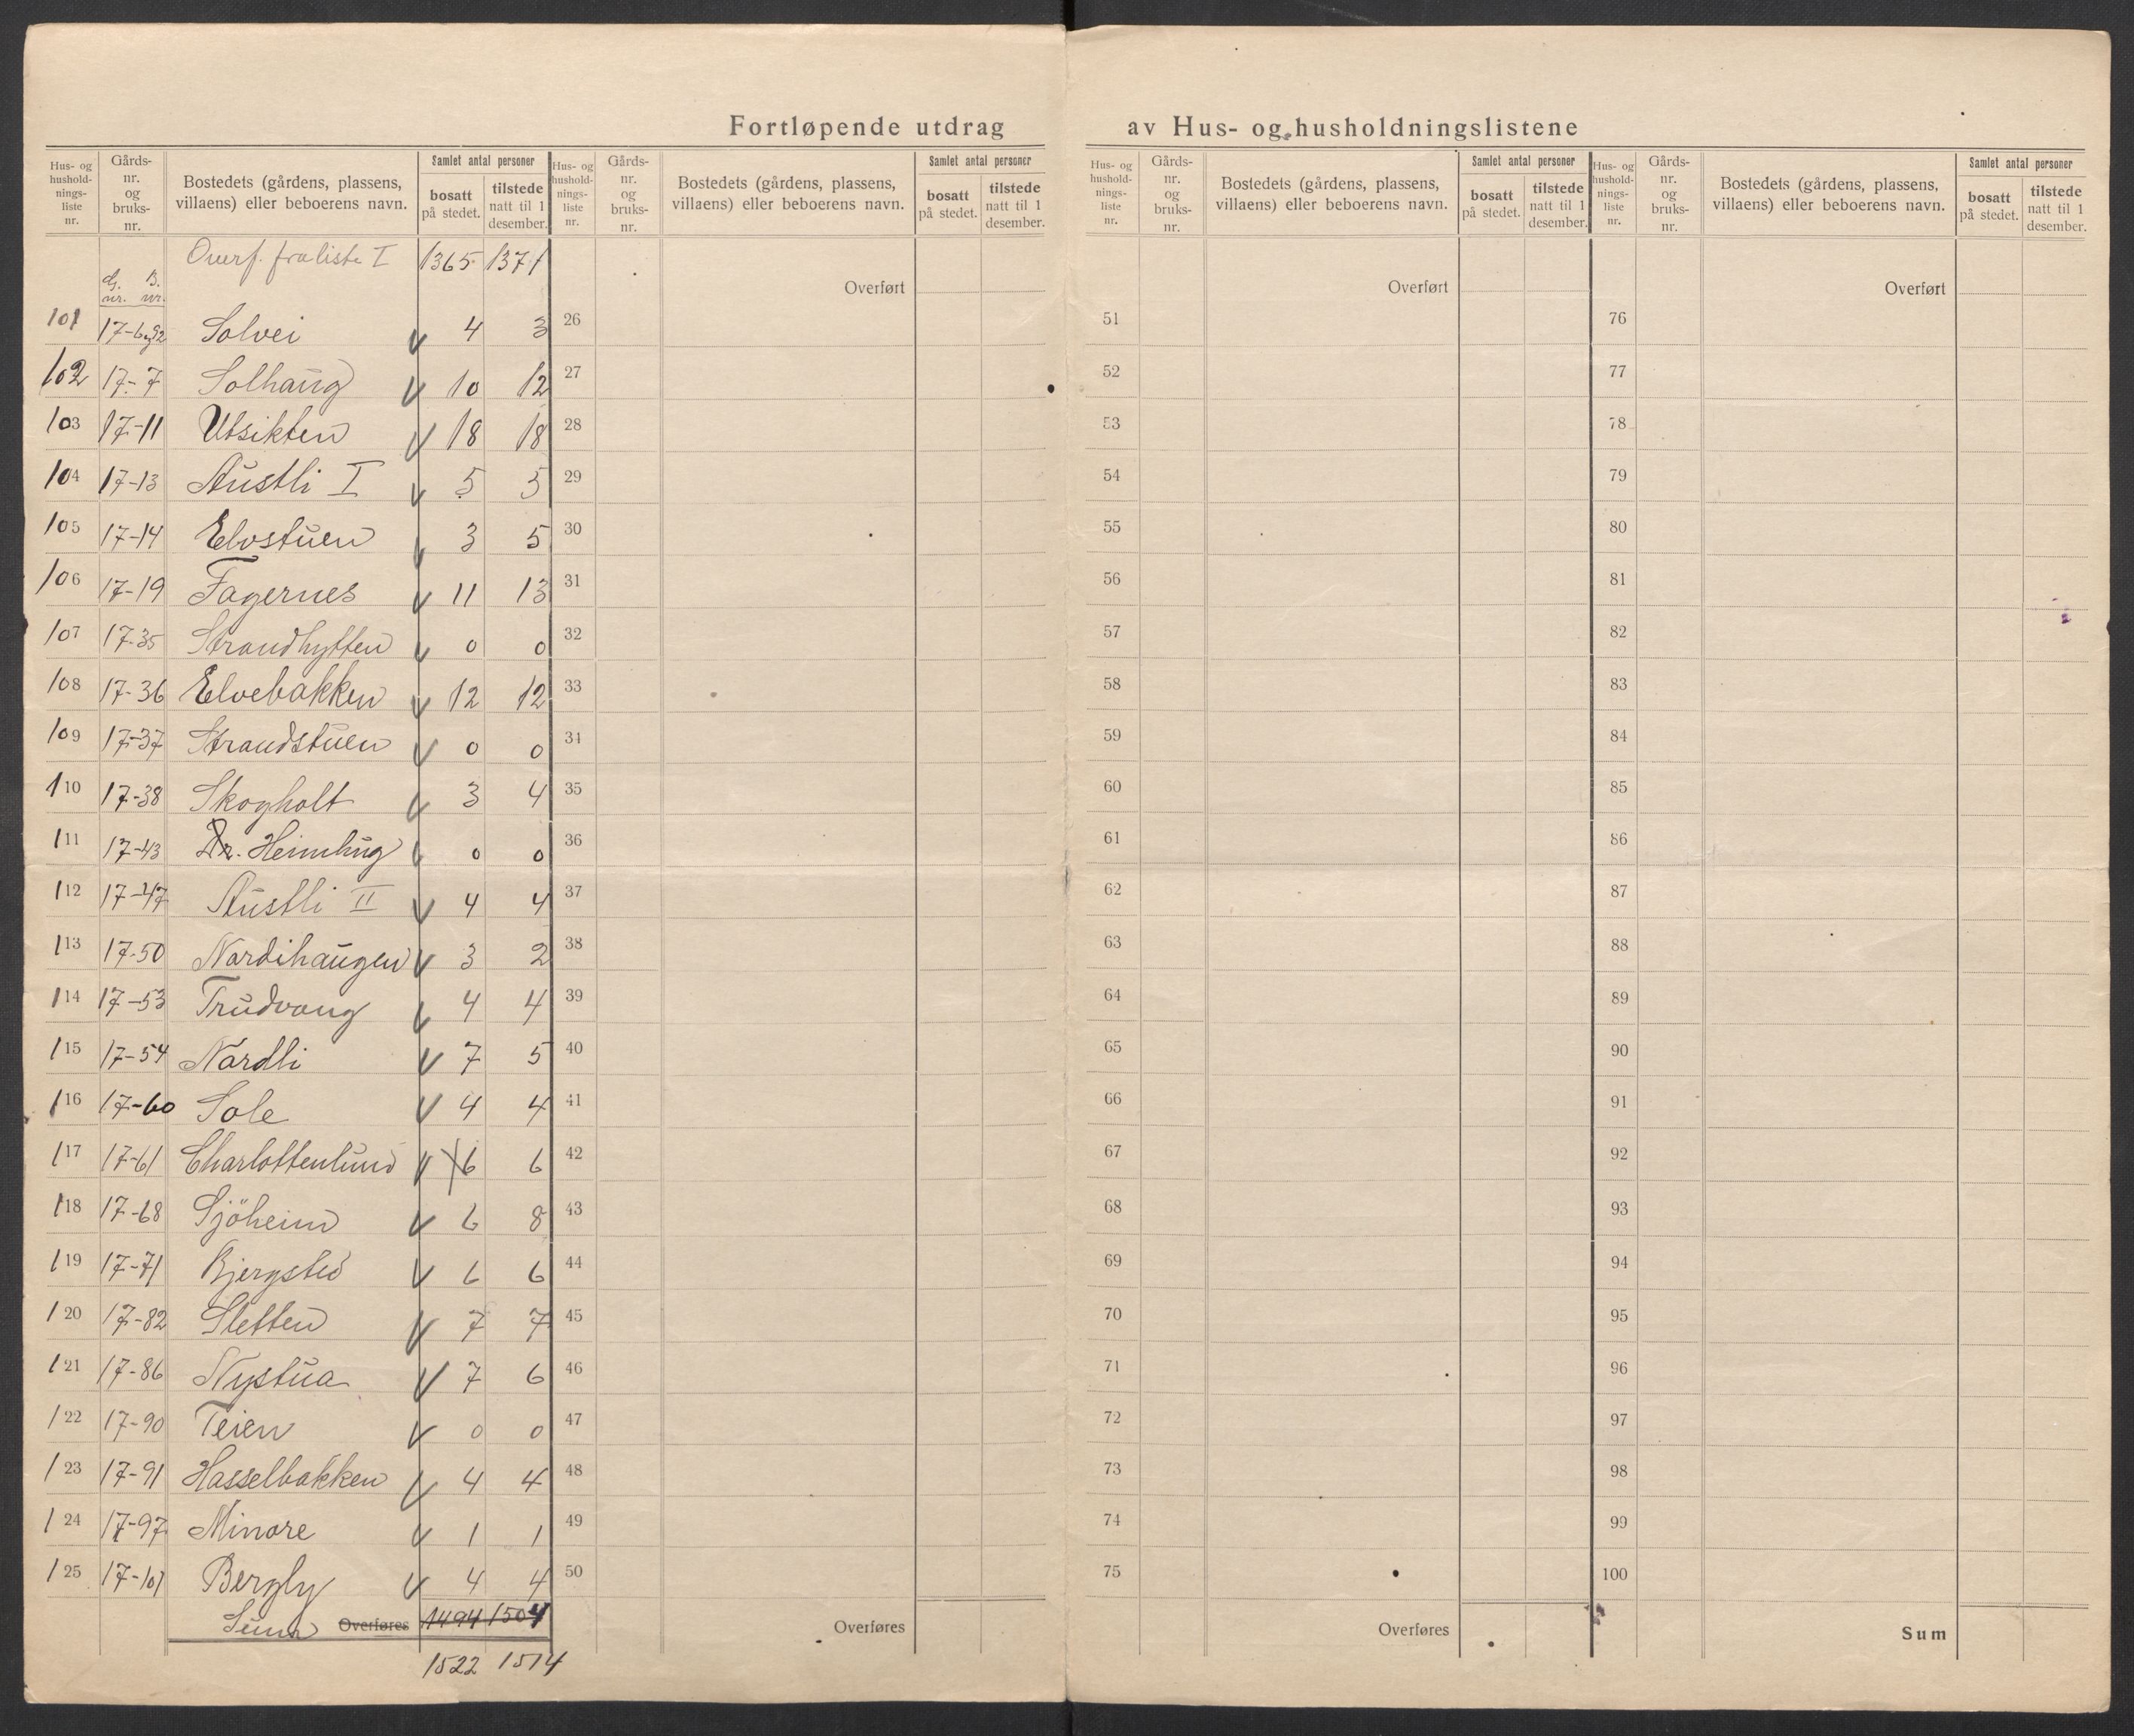 Fortløpende utdrag av Hus- og husholdningslistene
Hus- og husholdningsliste nr. Gårds-nr. og bruks-nr. Bostedets (gårdens, plassens, villaens) eller beboerens navn. Samlet antal personer bosatt på stedet. tilstede natt til 1 desember.
Overf. fra liste I 1365 1371
G. nr. B. nr.
101 17-6 og 92 Solvei 4 3
102 17-7 Solhaug 10 12
103 17-11 Utsikten 18 18
104 17-13 Austli I 5 5
105 17-14 Elvstuen 3 5
106 17-19 Fagernes 11 13
107 17-35 Strandhytten 0 0
108 17-36 Elvebakken 12 12
109 17-37 Strandstuen 0 0
110 17-38 Skogholt 3 4
111 17-43 Heimhug 0 0
112 17-47 Austli II 4 4
113 17-50 Nordihaugen 3 2
114 17-53 Trudvang 4 4
115 17-54 Nordli 7 5
116 17-60 Sole 4 4
117 17-61 Charlottenlund 6 6
118 17-68 Sjöheim 6 8
119 17-71 Bjergsted 6 6
120 17-82 Sletten 7 7
121 17-86 Nystua 7 6
122 17-90 Teien 0 0
123 17-91 Hasselbakken 4 4
124 17-97 Minore 1 1
125 17-101 Bergly 4 4
Summa Overføres 1494 1504
1522 1514
Hus- og husholdningsliste nr. Gårds-nr. og bruks-nr. Bostedets (gårdens, plassens, villaens) eller beboerens navn. Samlet antal personer bosatt på stedet. tilstede natt til 1 desember.
Overført
26
27
28
29
30
31
32
33
34
35
36
37
38
39
40
41
42
43
44
45
46
47
48
49
50
Overføres
Hus- og husholdningsliste nr. Gårds-nr. og bruks-nr. Bostedets (gårdens, plassens, villaens) eller beboerens navn. Samlet antal personer bosatt på stedet. tilstede natt til 1 desember.
Overført
51
52
53
54
55
56
57
58
59
60
61
62
63
64
65
66
67
68
69
70
71
72
73
74
75
Overføres
Hus- og husholdningsliste nr. Gårds-nr. og bruks-nr. Bostedets (gårdens, plassens, villaens) eller beboerens navn. Samlet antal personer bosatt på stedet. tilstede natt til 1 desember.
Overført
76
77
78
79
80
81
82
83
84
85
86
87
88
89
90
91
92
93
94
95
96
97
98
99
100
Sum